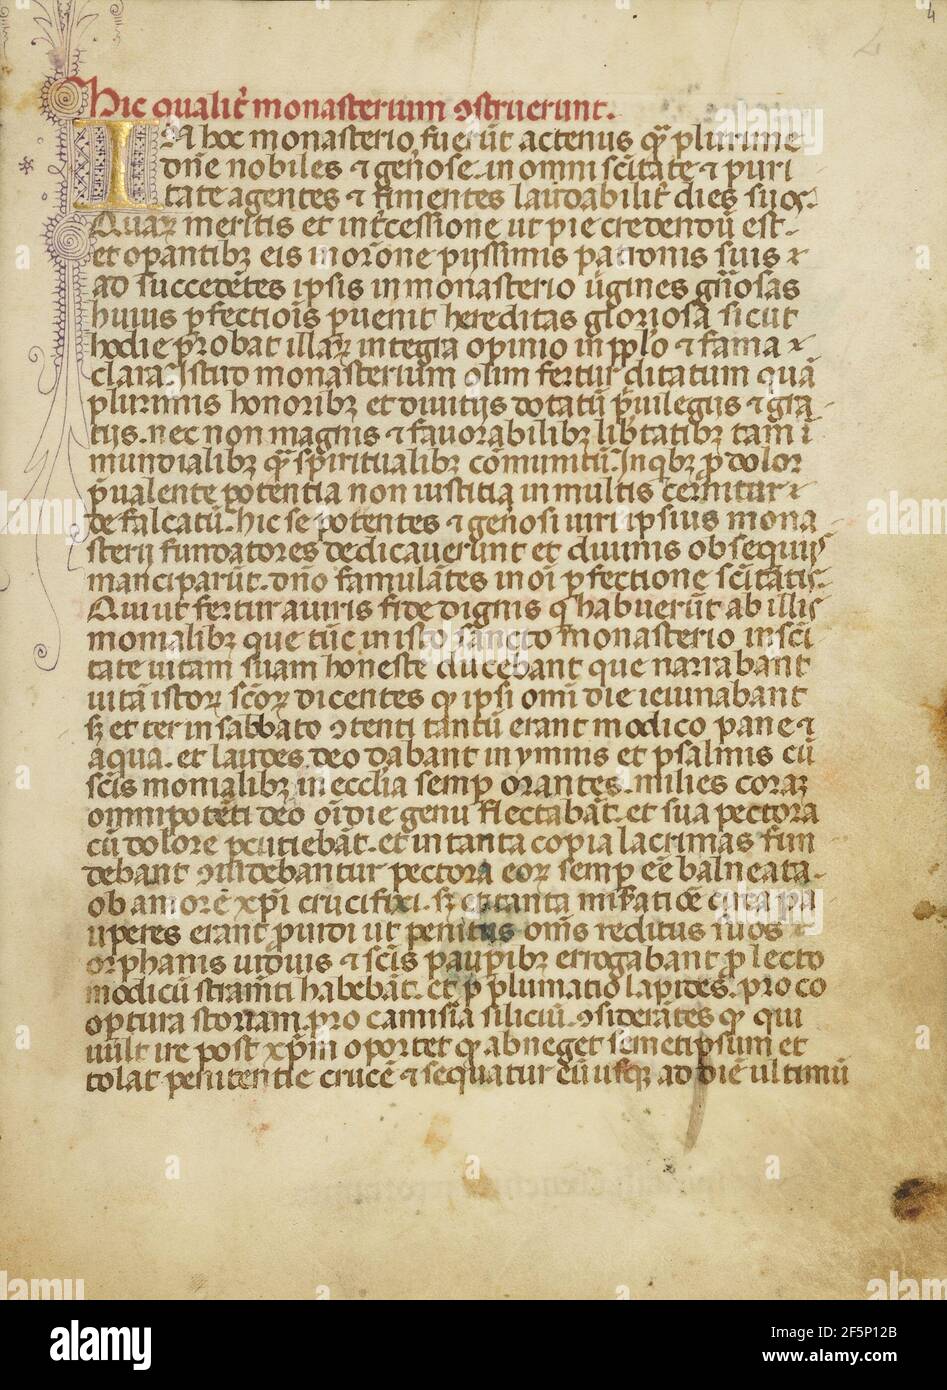 4
Hic qualit̄ monasterium ꝯstruerunt.
IN hoc monasterio fuerūt actenus qᷓ plurime
dn̄e nobiles ⁊ gen̄ose. in omni sc̄itate ⁊ puri
tate agentes ⁊ finientes laudabilit̄ dies suoꝫ.
Quaꝝ meritis et int̄cessione ut pie credendū est.
et opantibꝫ eis in or̄one pijssimis patronis suis ⁊
ad succedētes ipsis in monasterio ūgines gn̄osas
huius ꝑfectiois̄ ꝑuenit hereditas gloriosa sicut
hodie ꝓbat illaꝝ integra opinio in pp̄lo ⁊ fama
clara. Istud monasterium olim fertur ditatum quā
plurimis honoribꝫ et diuitijs dotatū p̄uilegijs ⁊ gra
tijs. nec non magnis ⁊ fauorabilibꝫ lib̄tatibꝫ tam ī
mundialibꝫ qᷓ sp̄iritualibꝫ cōmunitū. In qbꝫ ꝓ dolor
p̄ualente potentia non iustitia in multis cernitur
defalcatū. hic se potentes ⁊ gen̄osi uiri ipsius mona
sterij fundatores dedicauerunt et diuinis obsequijs
manciparūt. dn̄o famulātes in oī ꝑfectione sc̄itatis.
Qui ut fertur a uiris fide dignis q̄ habuerūt ab illis
monialibꝫ que tūc in isto sancto monasterio in sc̄i
tate uitam suam honeste ducebant que narrabant
uitā istoꝝ sc̄oꝝ dicentes ꝙ ipsi omī die ieiunabant
sꝫ et ter in sabbato ꝯtenti tantū erant modico pane ⁊
aqua. et laudes deo dabant in ymnis et psalmis cū
sc̄is monialibꝫ in ecclia semꝑ orantes. milies coraꝫ
omnipotēti deo oī die genu flectabāt. et sua pectora
cū dolore ꝑcutiebāt. et in tanta copia lacrimas fun
debant ꝯ uidebantur pectora eoꝝ semꝑ eē̄ balneata
ob amorē xp̄i crucifixi. sꝫ et tanta mis̄atiōe circa pa
uperes erant ꝓuidi ut penitus oms̄ reditus suos
orphanis uiduis ⁊ sc̄is pauꝑibꝫ errogabant ꝓ lecto
modicū stram̄ti habebāt. et ꝓ plumatio lapides. pro co
opertura storiam. pro camisia siliciū. ꝯsiderātes ꝙ qui
uult ire post xp̄m oportet ꝙ abneget semetipsum et
tolat penitentie crucē ⁊ sequatur eū usqꝫ ad diē ultimū
alamy
Image ID: 2F5P12B
www.alamy.com